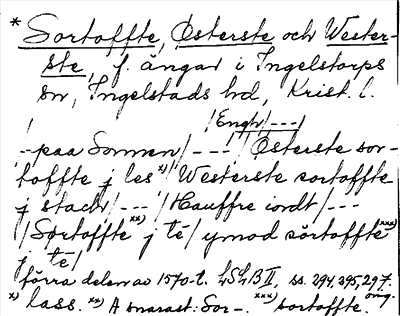 * Sortoffte, Østerste och Wester-
ste, f. ängar i Ingelstorps
sn, Ingelstads hd, Krist. l.
/Engh/---/
/--paa Sonnen/---/Østerste sor-
toffte j les x)/Westerste sortoffte
j stach/---/Hauffre iordt/---
/Sortoffte xx) j té/ ymod sörtoffte xxx)
j té/
förra delen av 1570-t. LSLB II, ss. 294, 295, 297.
x) lass. xx) A snarast: Sor-. xxx) sortoffte. orig.